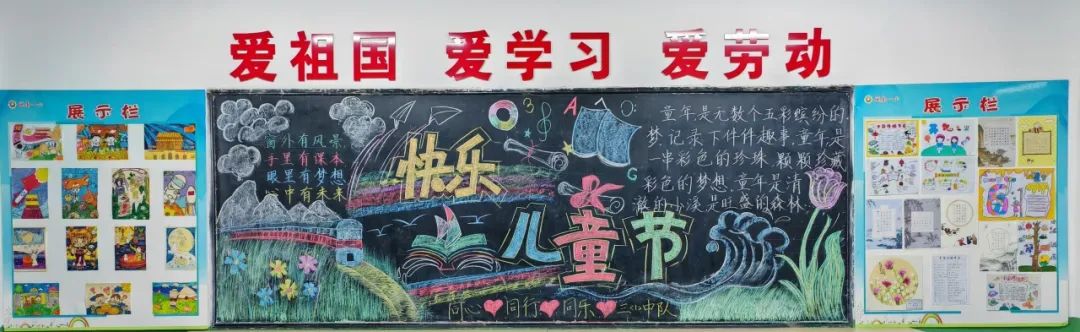 爱祖国 爱学习 爱劳动
展示栏
窗外有风景
手里有课本
眼里有梦想
心中有未来
快乐
儿童节
3
A
G
童年是无数个五彩缤纷的
梦,记录下件件趣事,童年是
一串彩色的珍珠,颗颗珍藏
彩色的梦想.童年是清
澈的小溪是旺盛的森林.
同心❤同行❤同乐❤三(2)中队
展示栏